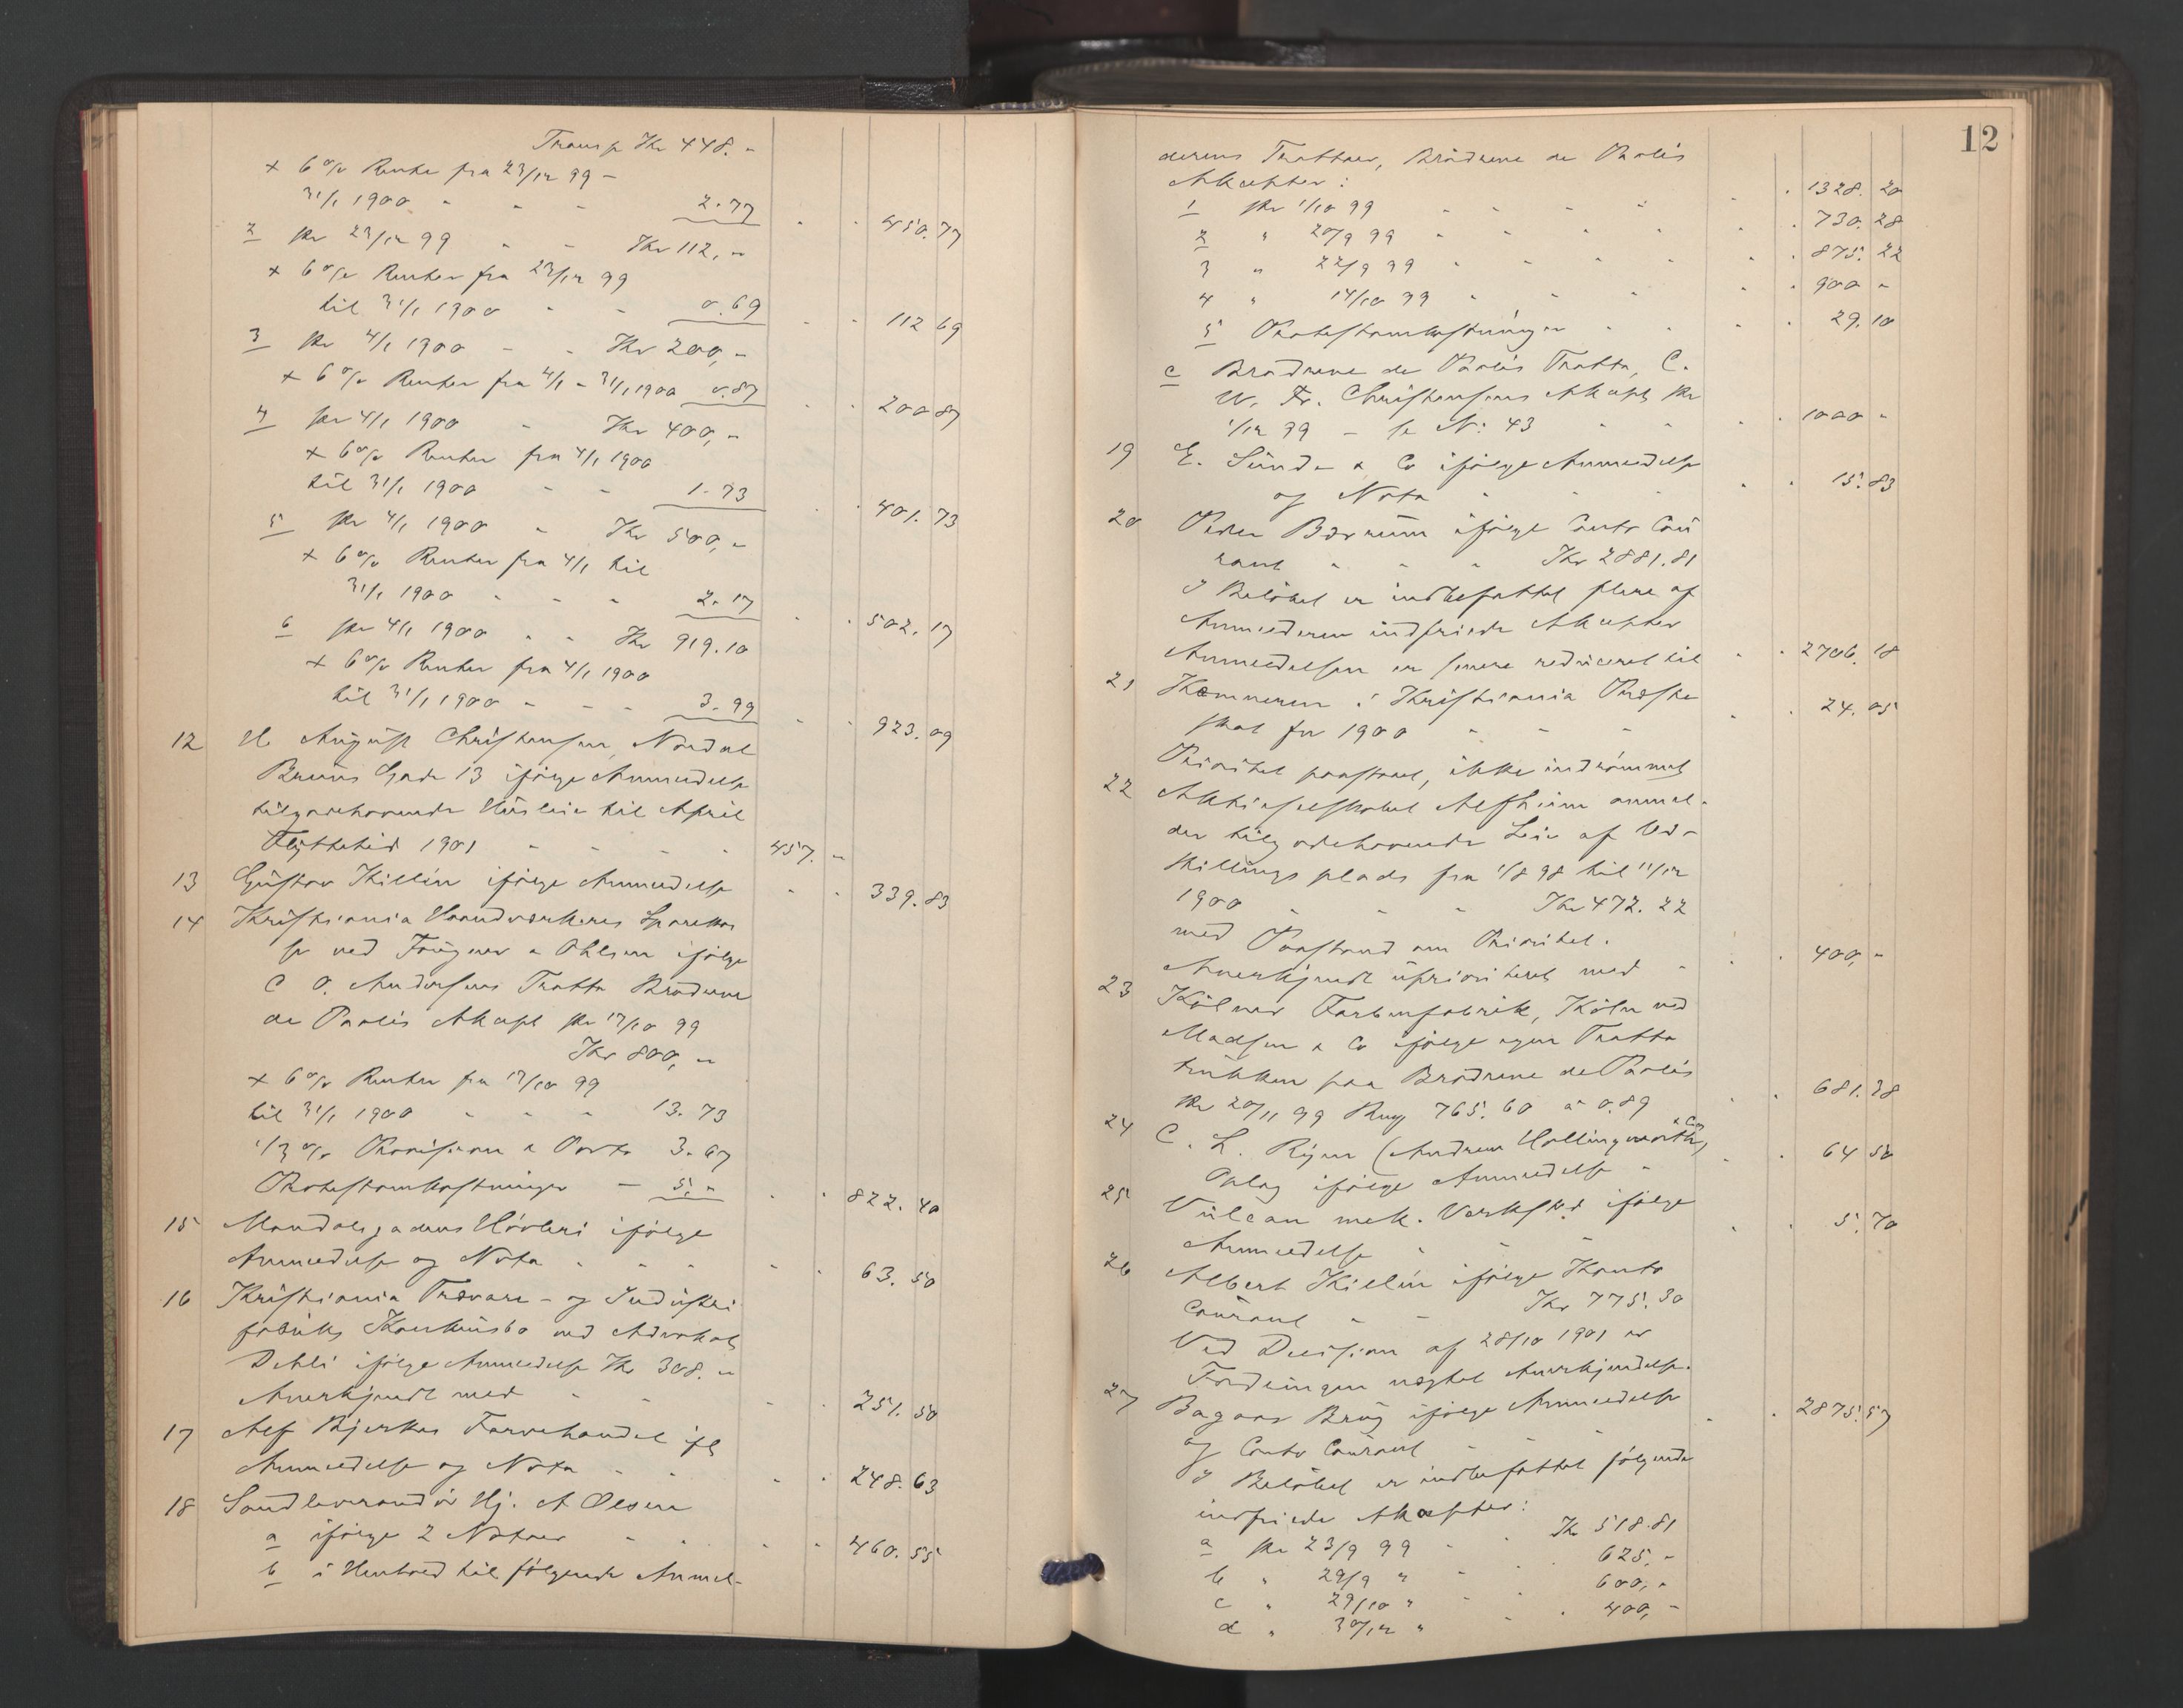 Transp Kr 448. -
+ 6 % Renter fra 23/12 99 -
31/1 1900 - - - 2.77 - - 450.77
2 pr 23/12 99 - - Kr 112, -
+ 6 % Renter fra 23/12 99
til 31/1 1900 - - 0.69 - - 112 69
3 pr 4/1 1900 - - Kr 200, -
+ 6 % Renter fra 4/1 - 31/1 1900 0.87 - - 200 87
4 pr 4/1 1900 - Kr 400, -
+ 6 % Renter fra 4/1 1900
til 31/1 1900 - - 1.73 - - 401.73
5 pr 4/1 1900 - Kr 500, -
+ 6 % Renter fra 4/1 til
31/1 1900 - - - 2.17 - - 502.17
6 pr 4/1 1900 - - Kr 919.10
+ 6 % Renter fra 4/1 1900
til 31/1 1900 - - - 3.99 - - 923.09
12 H. August Christensen, Nordal
Bruns Gade 13 ifølge Anmeldelse
tilgodehavende Husleie til April
Flyttetid 1901 - - - - 457. -
13 Gustav Killén ifølge Anmeldelse - - 339.83
14 Kristiania Haandværkeres Sparekas
se ved Fougner & Ohlsen ifølge
C O. Andersens Tratta Brødrene
de Paolis Akcept pr 17/10 99
Kr 800, -
+ 6 % Renter fra 17/10 99
til 31/1 1900 - - - 13.73
1/3 % Provision & Porto 3.67
Protestomkostninger - 5, - - - 822.40
15 Mandalsgadens Høvleri ifølge
Anmeldelse og Nota - - - - - 63.50
16 Kristiania Trævare- og Industri
fabriks Konkursbo ved Advokat
Dehli ifølge Anmeldelse Kr 308. -
Anerkjendt med - - - - 251.50
17 Alf Bjerkes Farvehandel ifl
Anmeldelse og Nota - - - - 248.63
18 Sandleverandør Hj. A Olsen
a ifølge 2 Notaer - - - - 460.55
b i Henhold til følgende Anmel-
12
derens Trattaer, Brødrene de Paolis
Akcepter:
1 pr 1/10 99 - - - - - - 1328. 20
2 " 20/9 99 - - - - - - 730. 28
3 " 22/9 99 - - - - - - 875. 22
4 " 14/10 99 - - - - - 900 -
5 Protestomkostninger - - - - 29.10
c Brødrene de Paolis Tratta, C.
W. Fr. Christensens Akcept pr
1/12 99 - se N: 43 - - - - 1000 -
19 E. Sunde & Co ifølge Anmeldelse
og Nota - - - - - 15.83
20 Peder Bærum ifølge Conto Cou
rant - - - Kr 2881.81
I Beløbet er indbefattet flere af
Anmelderen indfriede Akcepter
Anmeldelsen er senere reduceret til - - 2706.18
21 Kæmneren i Kristiania Præste
skat for 1900 - - - - - 24.05
Prioritet paastaaet, ikke indrømmet
22 Aktieselskabet Alfheim anmel-
der tilgodehavende Leie af Ud-
stillingsplads fra 1/8 98 til 11/12
1900 - - - Kr 472.22
med Paastand om Prioritet.
Anerkjendt uprioriteret med - - - 400, -
23 Kölner Farbenfabrik, Köln ved
Madsen & Co ifølge egen Tratta
trukken paa Brødrene de Paolis
pr 20/11 99 Rmg 765.60 à 0.89 - - 681.38
24 C. L. Rijen (Andrew Hollingworth & Co)
Oplag ifølge Anmeldelse - - - 64 50
25 Vulcan mek. Verksted ifølge
Anmeldelse - - - - - 5.70
26 Albert Killén ifølge Konto
Courant - - Kr 775.30
Ved Decision af 28/10 1901 er
Fordringen nægtet Anerkjendelse.
27 Bagaas Brug ifølge Anmeldelse
og Conto Courant - - - - - 2875.57
I Beløbet er indbefattet følgende
indfriede Akcepter:
a pr 23/9 99 - - Kr 518.81
b " 29/9 " - - 625. -
c " 29/10 " - - 600, -
d " 30/12 " - 400, -